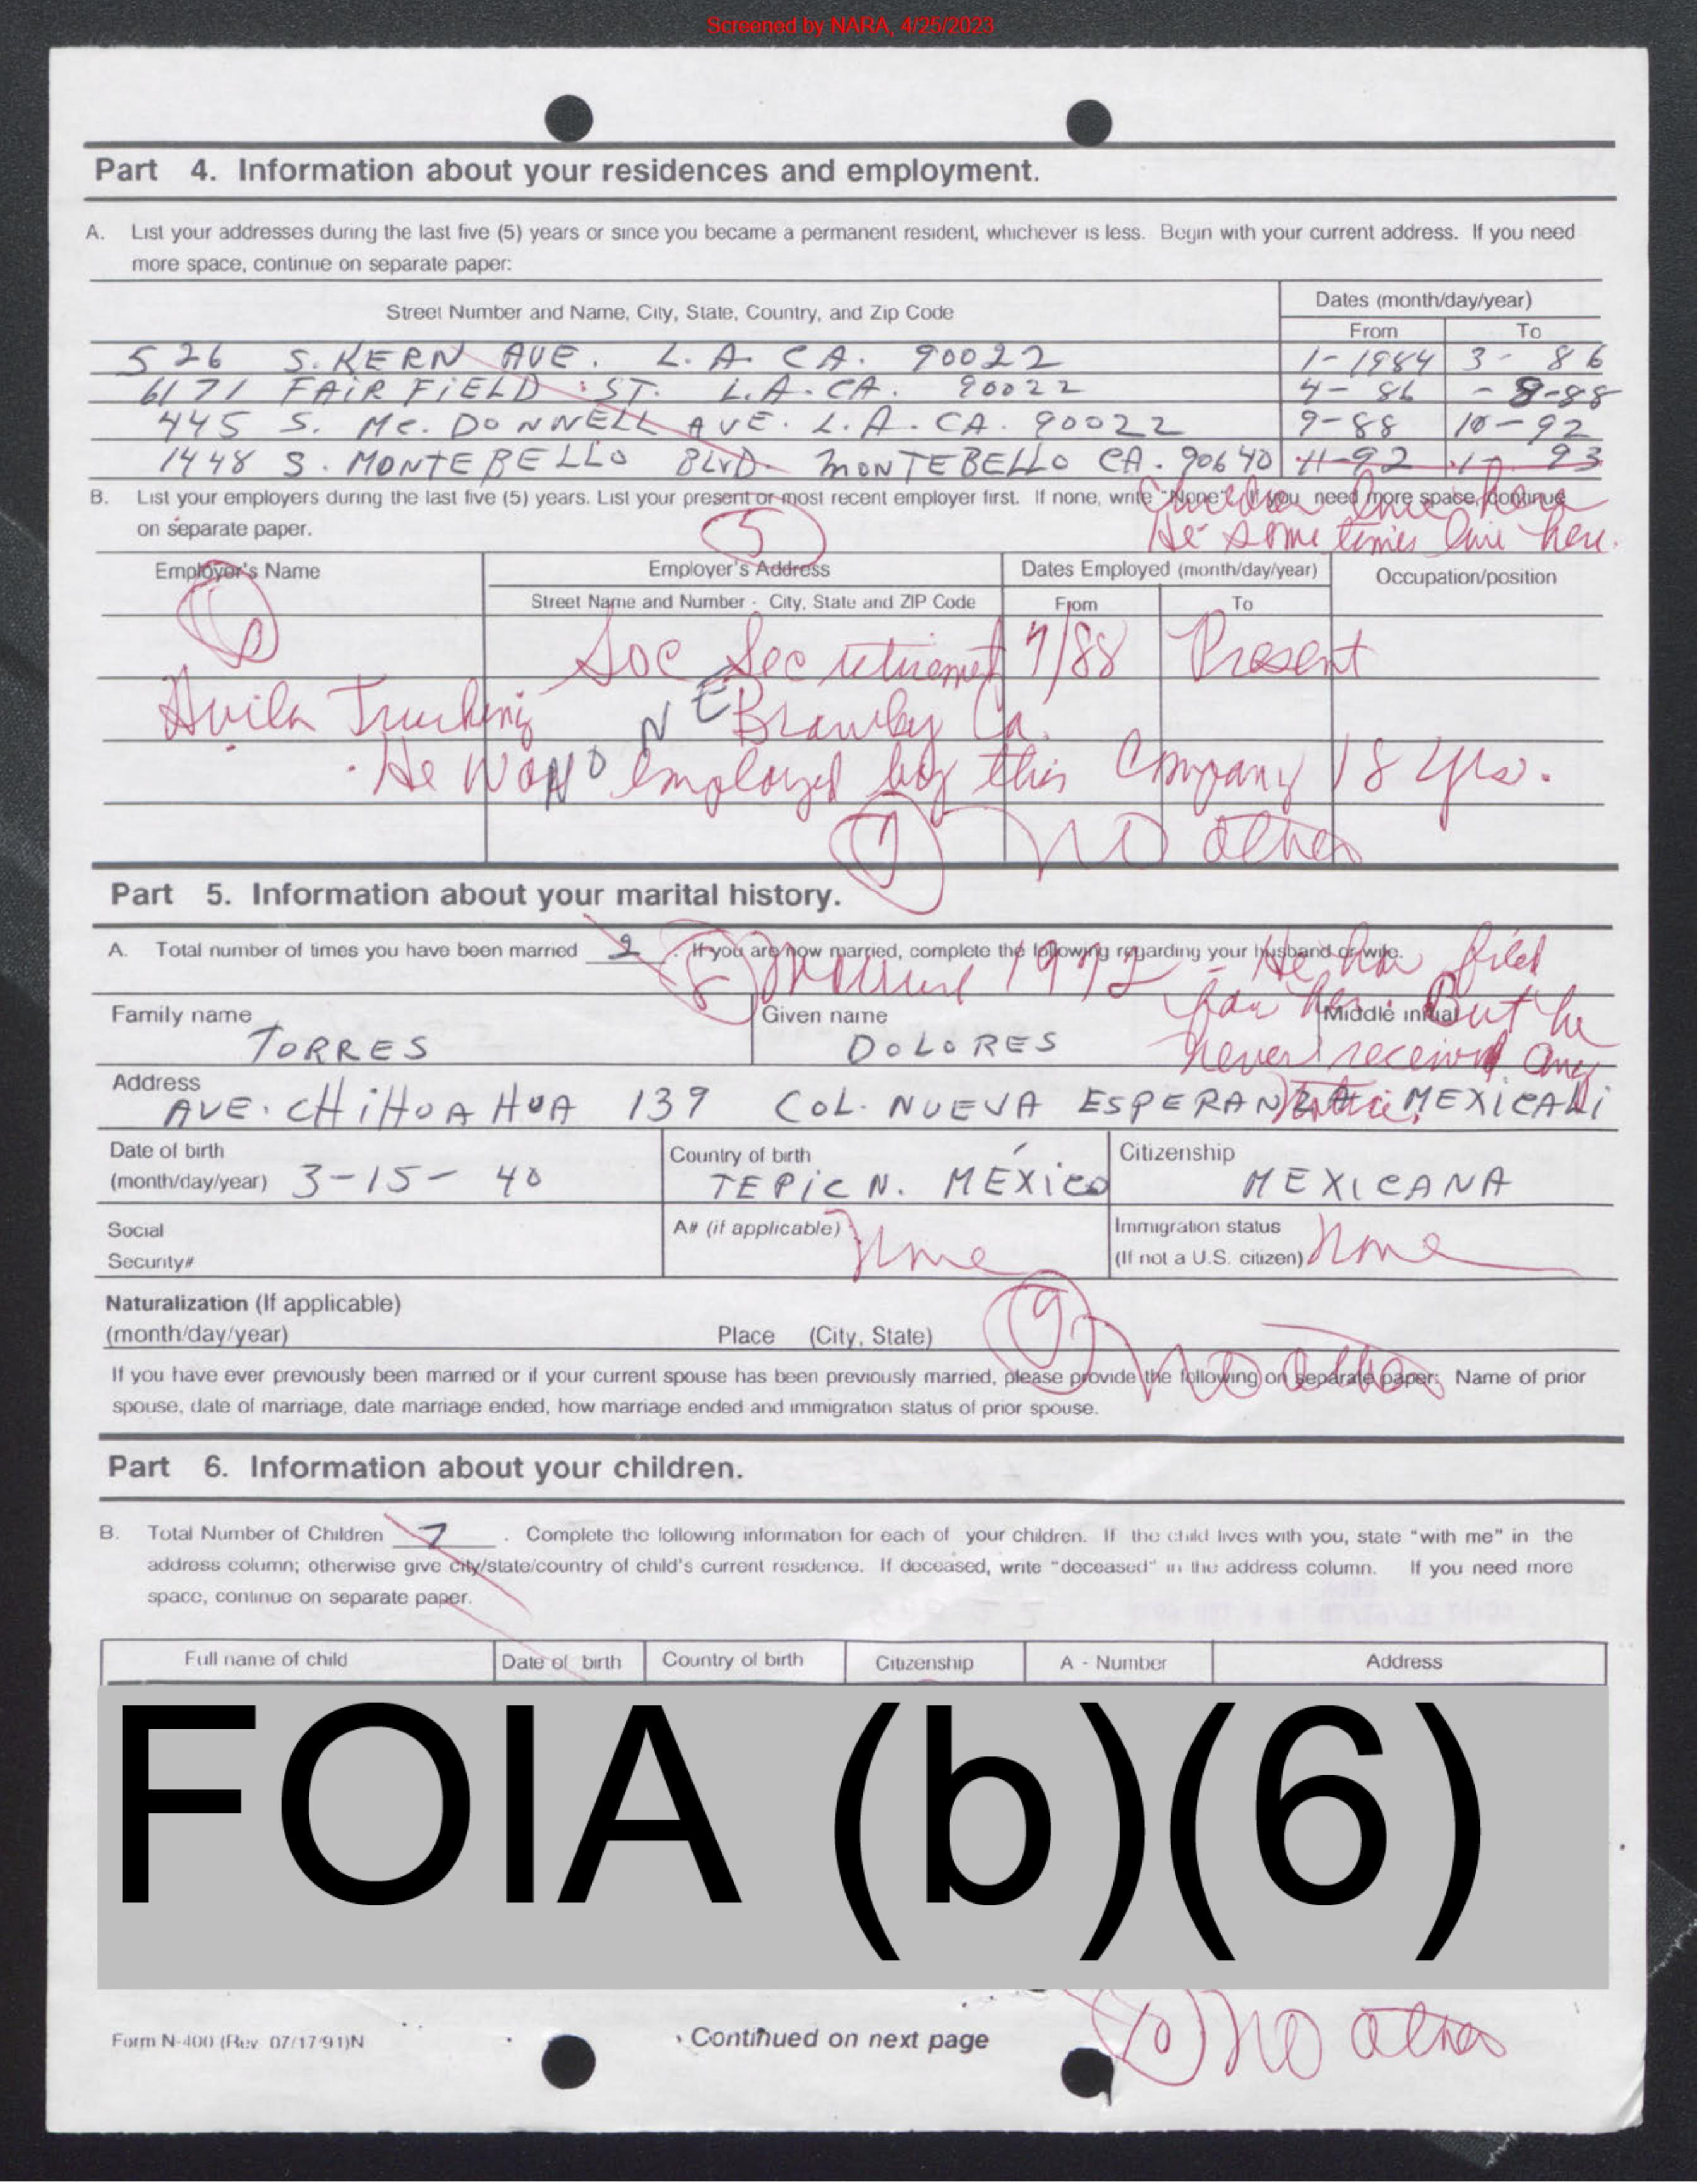 Screened by NARA, 4/25/2023
Part 4. Information about your residences and employment.
A. List your addresses during the last five (5) years or since you became a permanent resident, whichever is less. Begin with your current address. If you need
more space, continue on separate paper:
Street Number and Name, City, State, Country, and Zip Code
Dates (month/day/year)
From To
526 S. KERN AVE. L.A. CA. 90022 1-1984 3- 86
6171 FAIRFIELD ST. L.A. CA. 90022 4- 86 - 8-88
445 S. Mc. DONNELL AVE. L.A. CA. 90022 9-88 10-92
1448 S. MONTEBELLO BLVD. MONTEBELLO CA. 90640 11-92 1- 93
B. List your employers during the last five (5) years. List your present or most recent employer first. If none, write "None". If you need more space, continue
on separate paper.
live here
He some times live here.
5
Employer's Name
Employer's Address
Dates Employed (month/day/year)
Occupation/position
Street Name and Number - City, State and ZIP Code
From To
Soc Sec retirement 7/88 Present
Avila Trucking Brawley Ca.
NE
NO
He was employed by this Company 18 yrs.
7 No other
Part 5. Information about your marital history.
A. Total number of times you have been married 2 . If you are now married, complete the following regarding your husband or wife.
8 Married 1972 - He has filed
for her. But he
never received any
notice.
Family name Given name Middle initial
TORRES DOLORES
Address
AVE. CHiHUAHUA 139 COL. NUEVA ESPERANZA MEXICALi
Date of birth
(month/day/year) 3-15- 40
Country of birth
TEPiC N. MÉXiCO
Citizenship
MEXICANA
Social
Security#
A# (if applicable) None
Immigration status
(If not a U.S. citizen) None
Naturalization (If applicable)
(month/day/year) Place (City, State)
9 No other
If you have ever previously been married or if your current spouse has been previously married, please provide the following on separate paper: Name of prior
spouse, date of marriage, date marriage ended, how marriage ended and immigration status of prior spouse.
Part 6. Information about your children.
B. Total Number of Children 7 . Complete the following information for each of your children. If the child lives with you, state "with me" in the
address column; otherwise give city/state/country of child's current residence. If deceased, write "deceased" in the address column. If you need more
space, continue on separate paper.
Full name of child Date of birth Country of birth Citizenship A - Number Address
FOIA (b)(6)
Form N-400 (Rev 07/17/91)N
Continued on next page
10 No other